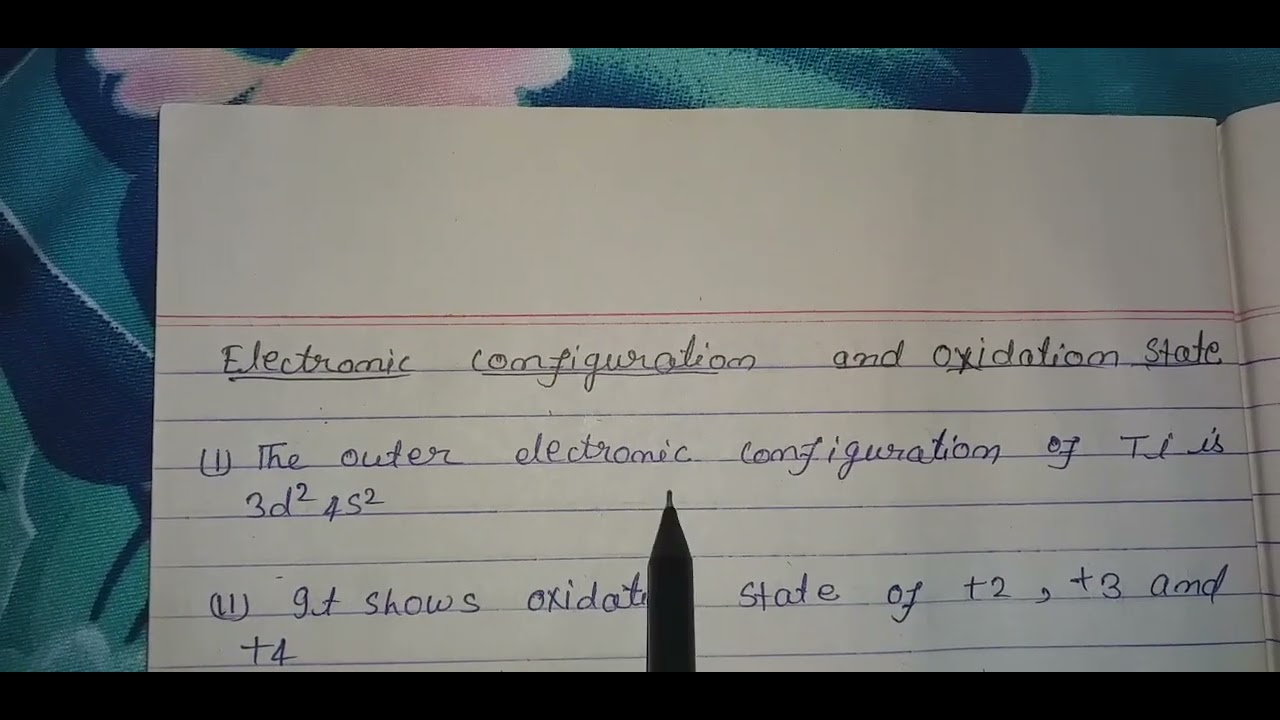 Electronic configuration and oxidation state
(I) The outer electronic configuration of Ti is
3d² 4s²
(II) It shows state of +2, +3 and
+4